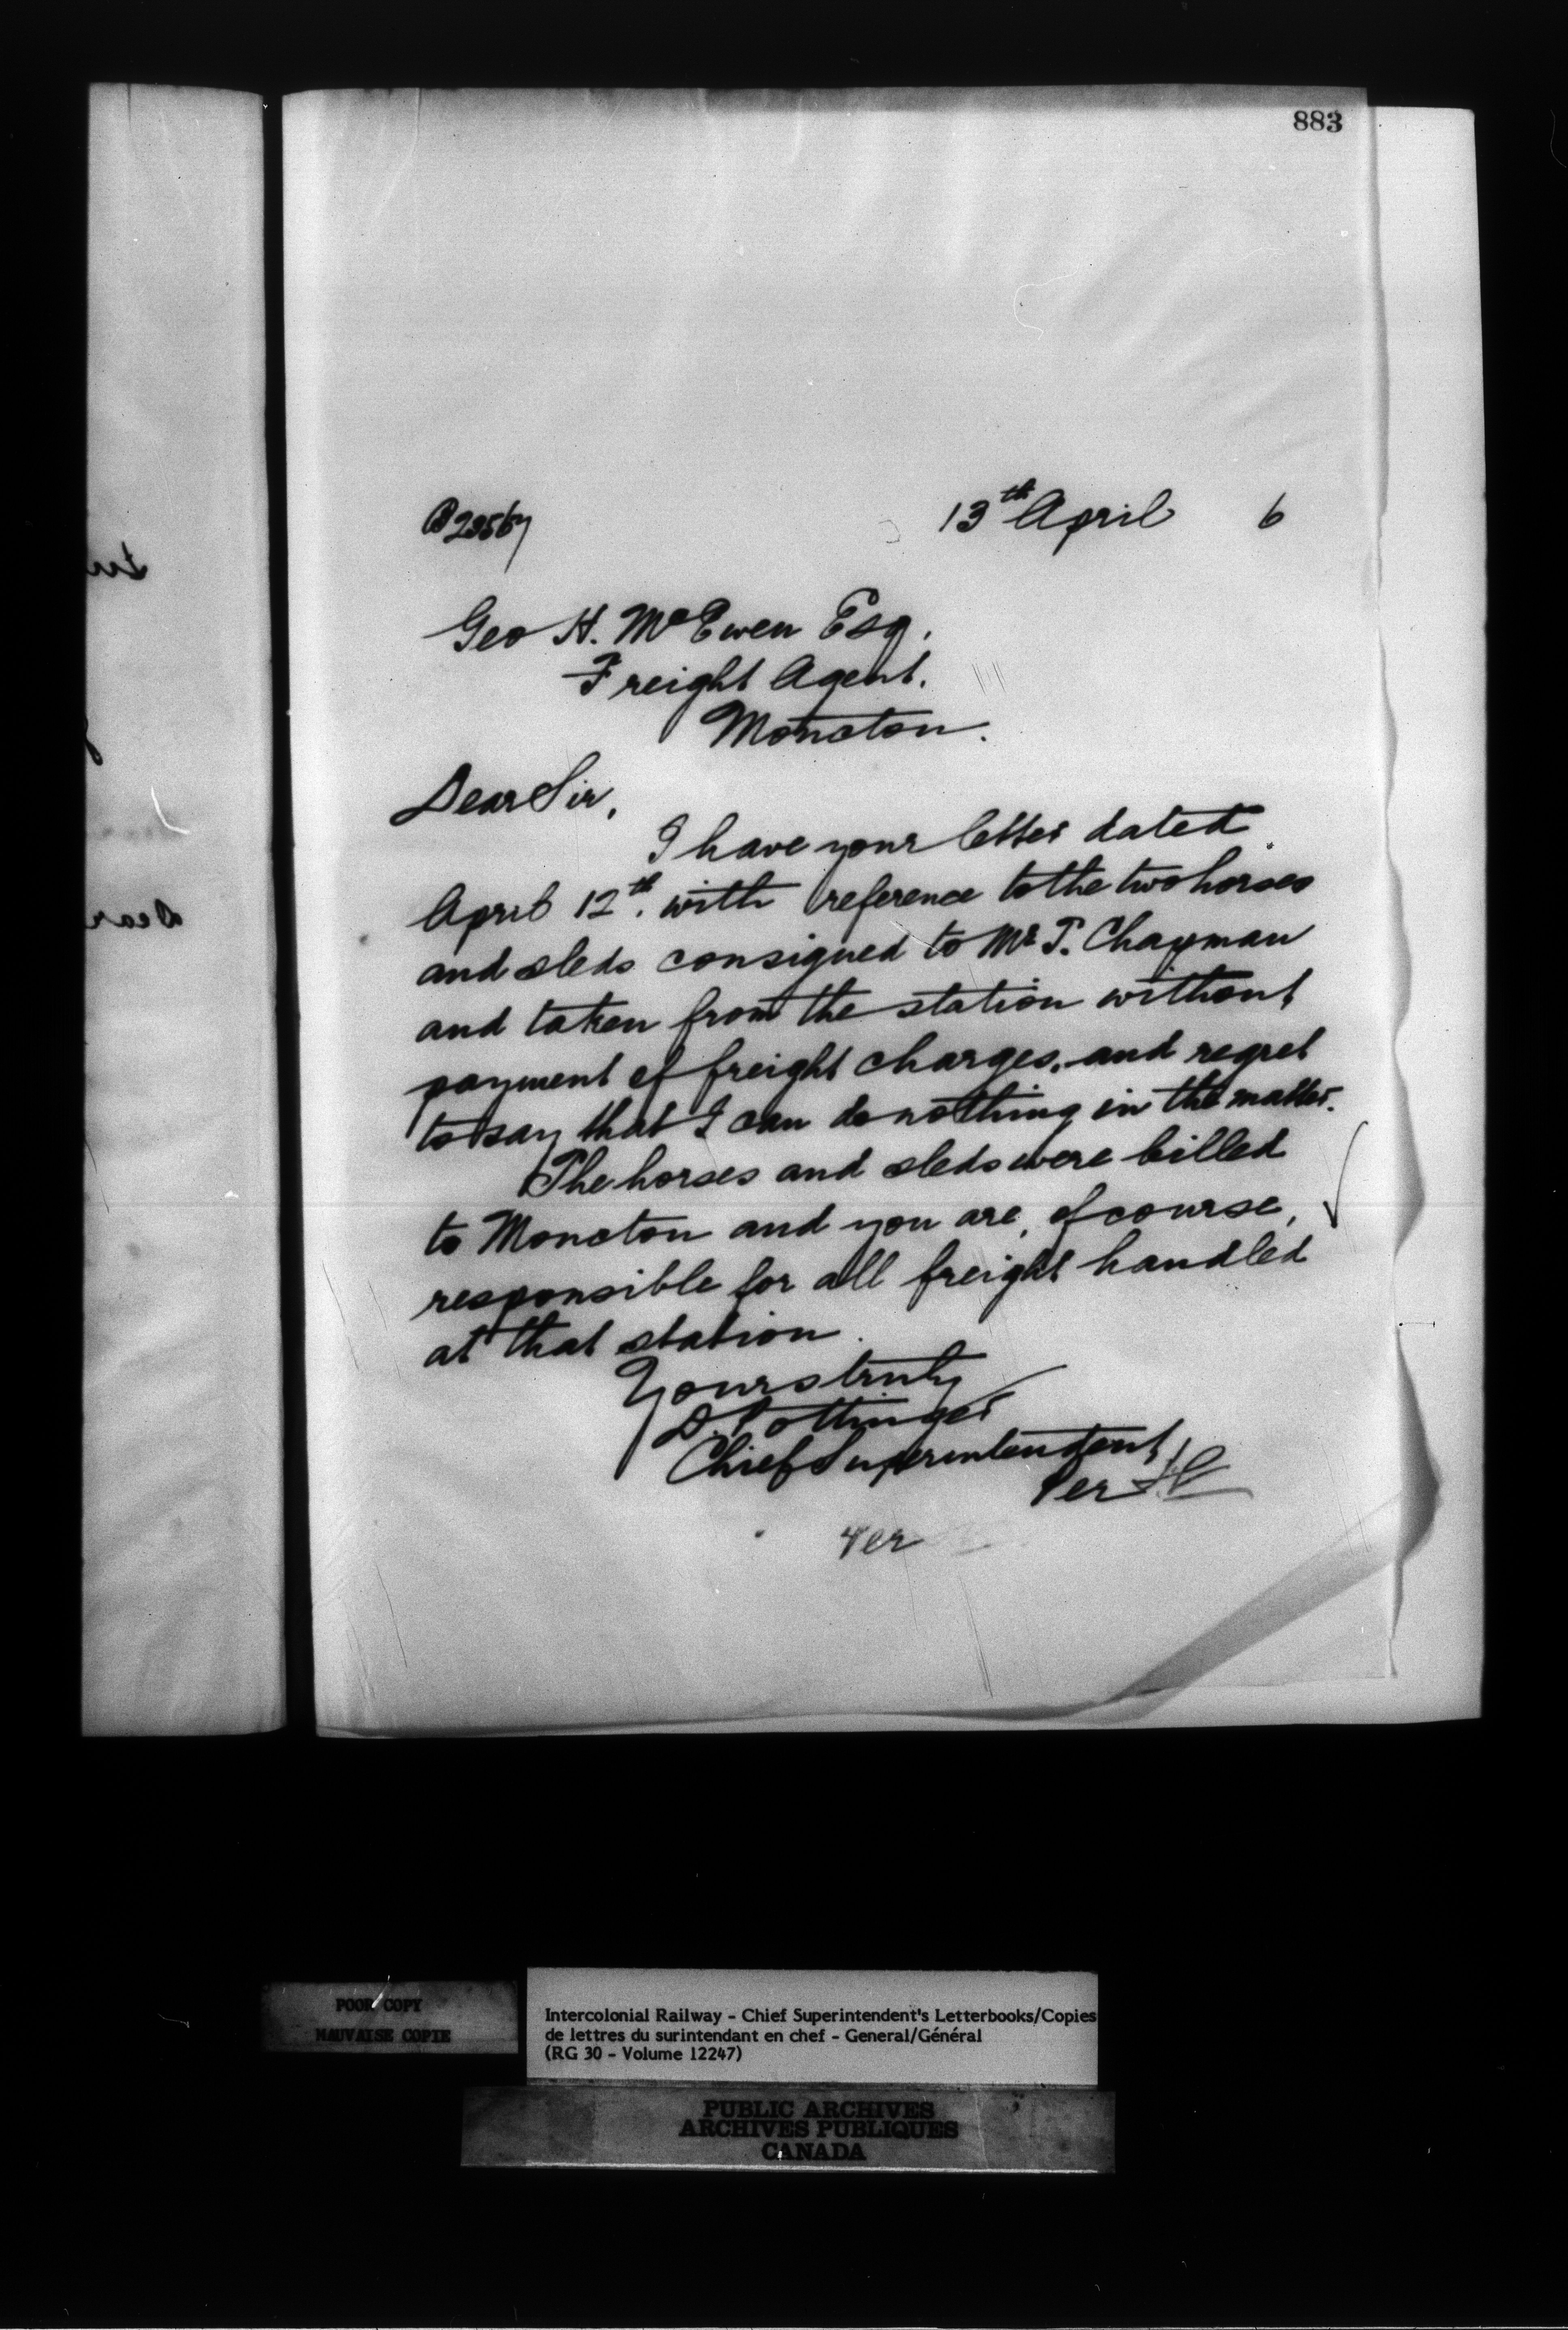 883
13th April 6
Geo H. McEwen Esq.
Freight Agent.
Moncton.
Dear Sir,
I have your letter dated
April 12th. with reference to the two horses
and sleds consigned to Mr T. Chapman
and taken from the station without
payment of freight charges, and regret
to say that I can do nothing in the matter.
The horses and sleds were billed
to Moncton and you are, of course,
responsible for all freight handled
at that station.
Yours truly
D. Pottinger
Chief Superintendent
Per
Per
Dear
POOR COPY
MAUVAISE COPIE
Intercolonial Railway - Chief Superintendent's Letterbooks/Copies
de lettres du surintendant en chef - General/Général
(RG 30 - Volume 12247)
PUBLIC ARCHIVES
ARCHIVES PUBLIQUES
CANADA